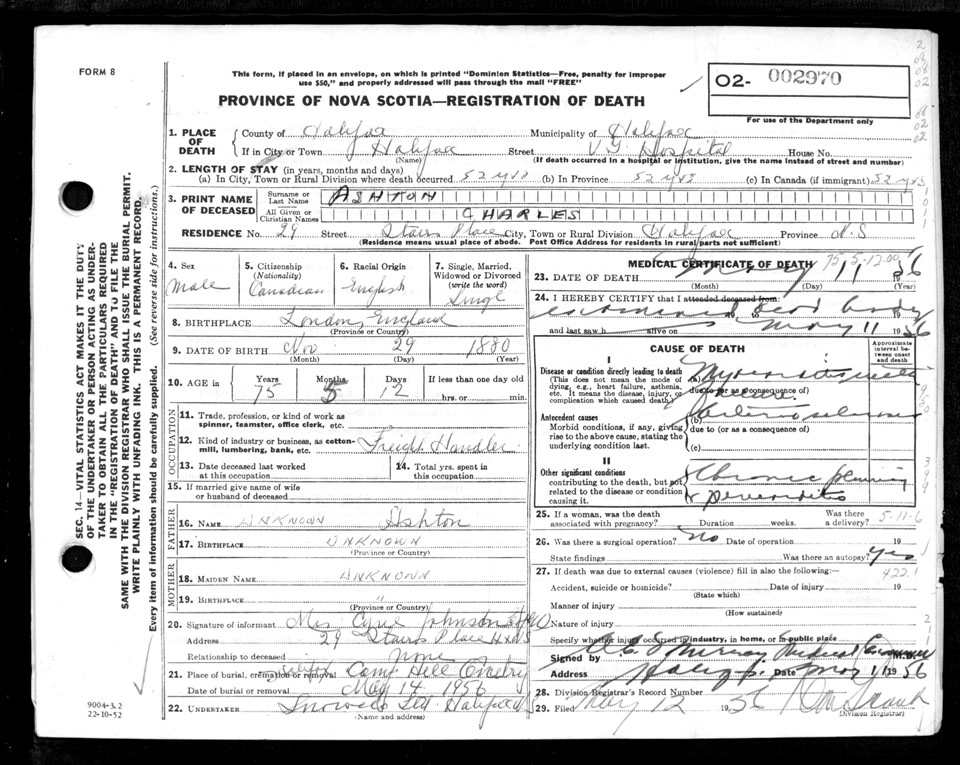 FORM 8
This form, if placed in an envelope, on which is printed "Dominion Statistics—Free, penalty for improper
use $50," and properly addressed will pass through the mail "FREE"
02- 002970
For use of the Department only
PROVINCE OF NOVA SCOTIA—REGISTRATION OF DEATH
1. PLACE OF DEATH { County of Halifax Municipality of Halifax
If in City or Town Halifax Street V.G. Hospital House No.
(Name) (If death occurred in a hospital or institution, give the name instead of street and number)
2. LENGTH OF STAY (in years, months and days)
(a) In City, Town or Rural Division where death occurred 52 yrs (b) In Province 52 yrs (c) In Canada (if immigrant) 52 yrs
3. PRINT NAME OF DECEASED { Surname or Last Name ASHTON
All Given or Christian Names CHARLES
RESIDENCE No. 29 Street Stairs Place City, Town or Rural Division Halifax Province N.S
(Residence means usual place of abode. Post Office Address for residents in rural parts not sufficient)
4. Sex Male
5. Citizenship (Nationality) Canadian
6. Racial Origin English
7. Single, Married, Widowed or Divorced (write the word) Single
8. BIRTHPLACE London, England
(Province or Country)
9. DATE OF BIRTH Nov 29 1880
(Month) (Day) (Year)
10. AGE in Years 75 Months 5 Days 12 If less than one day old
hrs. or min.
OCCUPATION
11. Trade, profession, or kind of work as
spinner, teamster, office clerk, etc.
12. Kind of industry or business, as cotton-
mill, lumbering, bank, etc. Freight Handler
13. Date deceased last worked
at this occupation
14. Total yrs. spent in
this occupation
15. If married give name of wife
or husband of deceased
FATHER
16. NAME UNKNOWN Ashton
17. BIRTHPLACE UNKNOWN
(Province or Country)
MOTHER
18. MAIDEN NAME UNKNOWN
19. BIRTHPLACE "
(Province or Country)
20. Signature of informant Mrs Johnson
Address 29 Stairs Place Hx NS
Relationship to deceased None
21. Place of burial, cremation or removal Halifax Camp Hill Cemetery
Date of burial or removal May 14 1956
22. UNDERTAKER Snow's Ltd Halifax
(Name and address)
MEDICAL CERTIFICATE OF DEATH 75-5-12.00
23. DATE OF DEATH May 11 1956
(Month) (Day) (Year)
24. I HEREBY CERTIFY that I attended deceased from:
examined dead body
19 to 19
and last saw h alive on May 11 1956
CAUSE OF DEATH
Approximate interval between onset and death
I
Disease or condition directly leading to death
(This does not mean the mode of
dying, e.g., heart failure, asthenia,
etc. It means the disease, injury, or
complication which caused death)
(a)
due to (or as a consequence of)
Antecedent causes
Morbid conditions, if any, giving
rise to the above cause, stating the
underlying condition last.
(b) Arteriosclerosis
due to (or as a consequence of)
(c)
II
Other significant conditions
contributing to the death, but not
related to the disease or condition
causing it.
Chronic pleurisy
& pericarditis
25. If a woman, was the death
associated with pregnancy? Duration weeks. Was there
a delivery? 5-11-6
26. Was there a surgical operation? No Date of operation 19
State findings Was there an autopsy? Yes
27. If death was due to external causes (violence) fill in also the following:— 422.1
Accident, suicide or homicide? Date of injury 19
(State which)
Manner of injury
(How sustained)
Nature of injury
Specify whether injury occurred in industry, in home, or in public place
Signed by Murray Medical Examiner M.D.
Address Halifax Date May 11 1956
28. Division Registrar's Record Number
29. Filed May 12 1956
(Division Registrar)
SEC. 14—VITAL STATISTICS ACT MAKES IT THE DUTY
OF THE UNDERTAKER OR PERSON ACTING AS UNDER-
TAKER TO OBTAIN ALL THE PARTICULARS REQUIRED
IN THE "REGISTRATION OF DEATH" AND TO FILE THE
SAME WITH THE DIVISION REGISTRAR WHO SHALL ISSUE THE BURIAL PERMIT.
WRITE PLAINLY WITH UNFADING INK. THIS IS A PERMANENT RECORD.
Every item of information should be carefully supplied. (See reverse side for instructions.)
9004-3.2
22-10-52